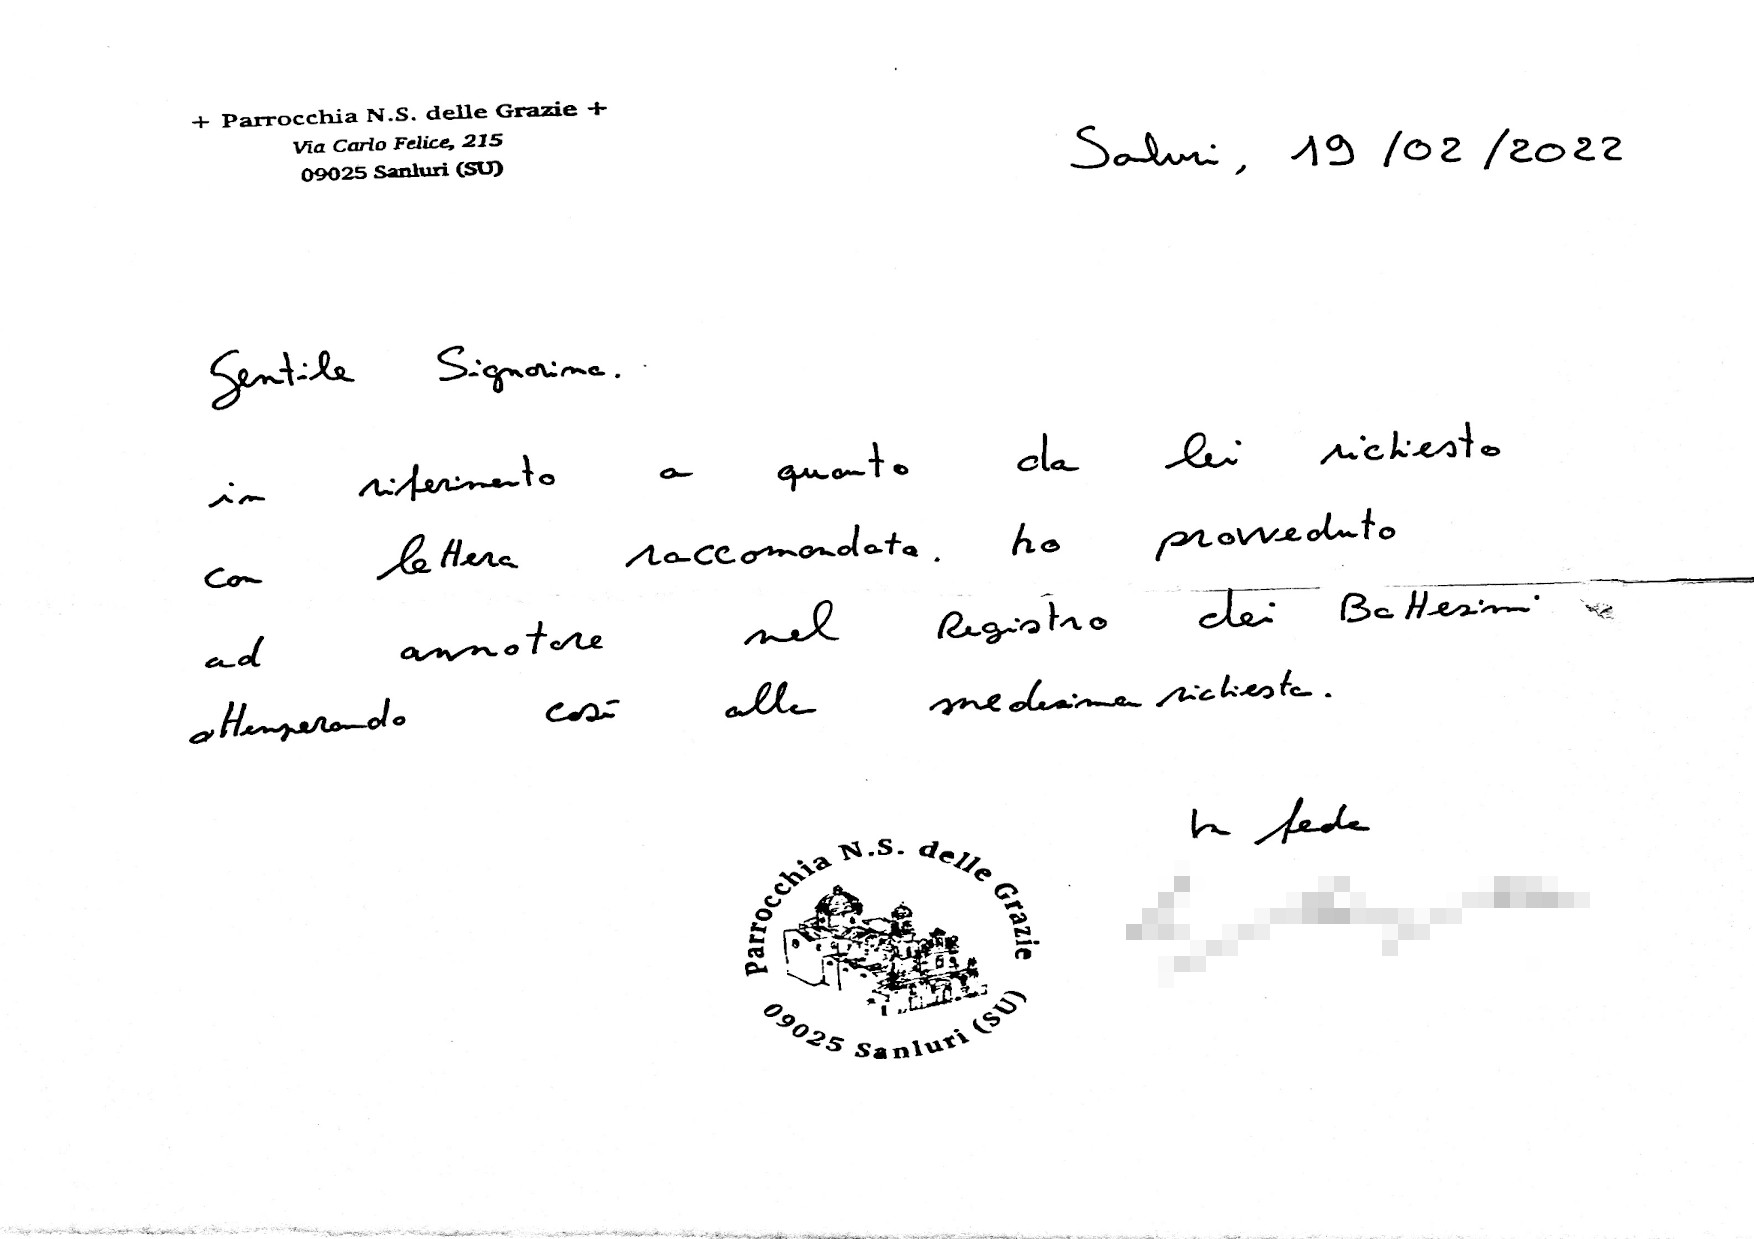 + Parrocchia N.S. delle Grazie +
Via Carlo Felice, 215
09025 Sanluri (SU)
Saluri, 19/02/2022
Gentile Signorina.
in riferimento a quanto da lei richiesto
con lettera raccomandata. ho provveduto
ad annotare nel Registro dei Battesimi
ottemperando così alla medesima richiesta.
In fede
Parrocchia N.S. delle Grazie
09025 Sanluri (SU)